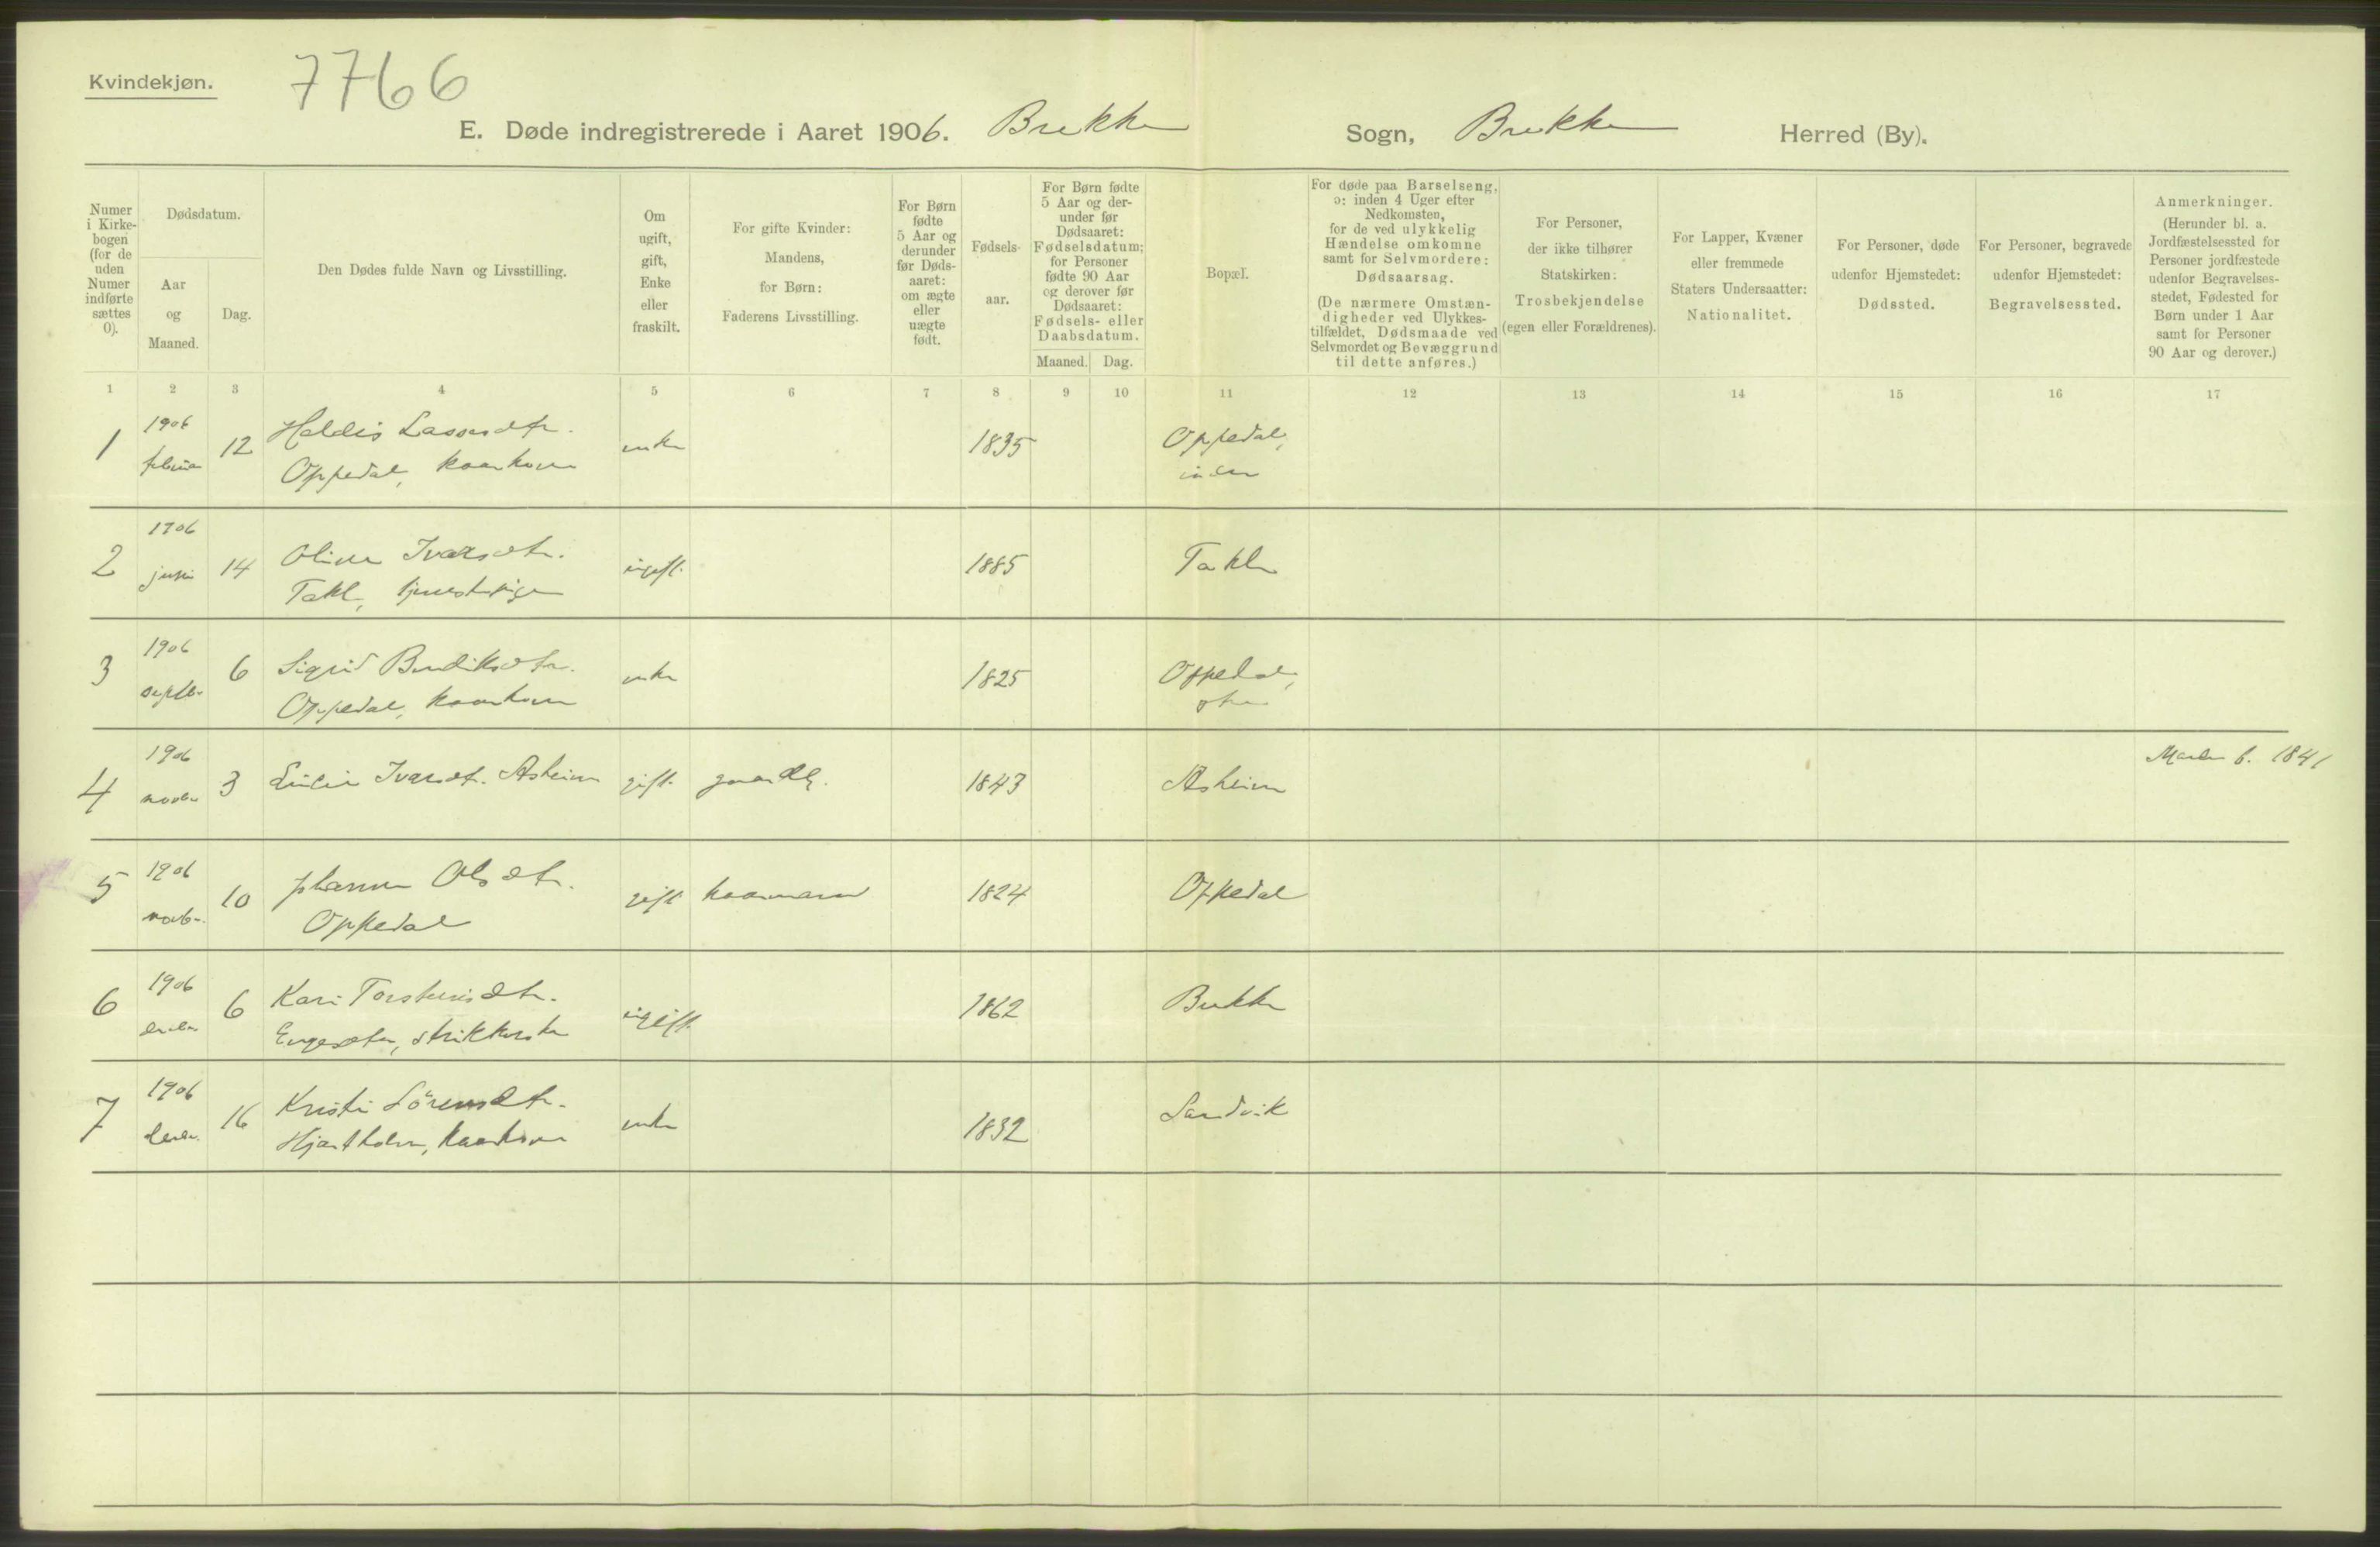 Kvindekjøn.
7766
E. Døde indregistrerede i Aaret 1906. Brekke Sogn, Brekke Herred (By).
Numer i Kirke-bogen (for de uden Numer indførte sættes 0).
Dødsdatum.
Aar og Maaned.
Dag.
Den Dødes fulde Navn og Livsstilling.
Om ugift, gift, Enke eller fraskilt.
For gifte Kvinder: Mandens, for Børn: Faderens Livsstilling.
For Børn fødte 5 Aar og derunder før Døds-aaret: om ægte eller uægte født.
Fødsels-aar.
For Børn fødte 5 Aar og der-under før Dødsaaret: Fødselsdatum; for Personer fødte 90 Aar og derover før Dødsaaret: Fødsels- eller Daabsdatum.
Maaned. Dag.
Bopæl.
For døde paa Barselseng, ɔ: inden 4 Uger efter Nedkomsten, for de ved ulykkelig Hændelse omkomne samt for Selvmordere: Dødsaarsag.
(De nærmere Omstæn-digheder ved Ulykkes-tilfældet, Dødsmaade ved Selvmordet og Bevæggrund til dette anføres.)
For Personer, der ikke tilhører Statskirken: Trosbekjendelse (egen eller Forældrenes).
For Lapper, Kvæner eller fremmede Staters Undersaatter: Nationalitet.
For Personer, døde udenfor Hjemstedet: Dødssted.
For Personer, begravede udenfor Hjemstedet: Begravelsessted.
Anmerkninger.
(Herunder bl. a. Jordfæstelsessted for Personer jordfæstede udenfor Begravelses-stedet, Fødested for Børn under 1 Aar samt for Personer 90 Aar og derover.)
1 2 3 4 5 6 7 8 9 10 11 12 13 14 15 16 17
1 1906 februar 12 Haldis Lassesdtr. enke 1835 Oppedal,
Oppedal, kaarkone
2 1906 juni 14 Oline Ivarsdtr. ugift. 1885 Takle
Takle, tjenestepige
3 1906 septbr. 6 Sigrid Bendiksdtr. enke 1825 Oppedal,
Oppedal, kaarkone
4 1906 novbr. 3 Ivarsdt. Asheim gift. 1843 Asheim 1841
5 1906 novbr. 10 Olsdtr. gift kaarmand 1824 Oppedal
Oppedal
6 1906 decbr. 6 Kari Torsteinsdtr. ugift. 1862 Brekke
Engesæter, strikkerske
7 1906 decbr. 16 Kristi Sörensdtr. enke 1832 Sandvik
Hjartholm, kaarkone